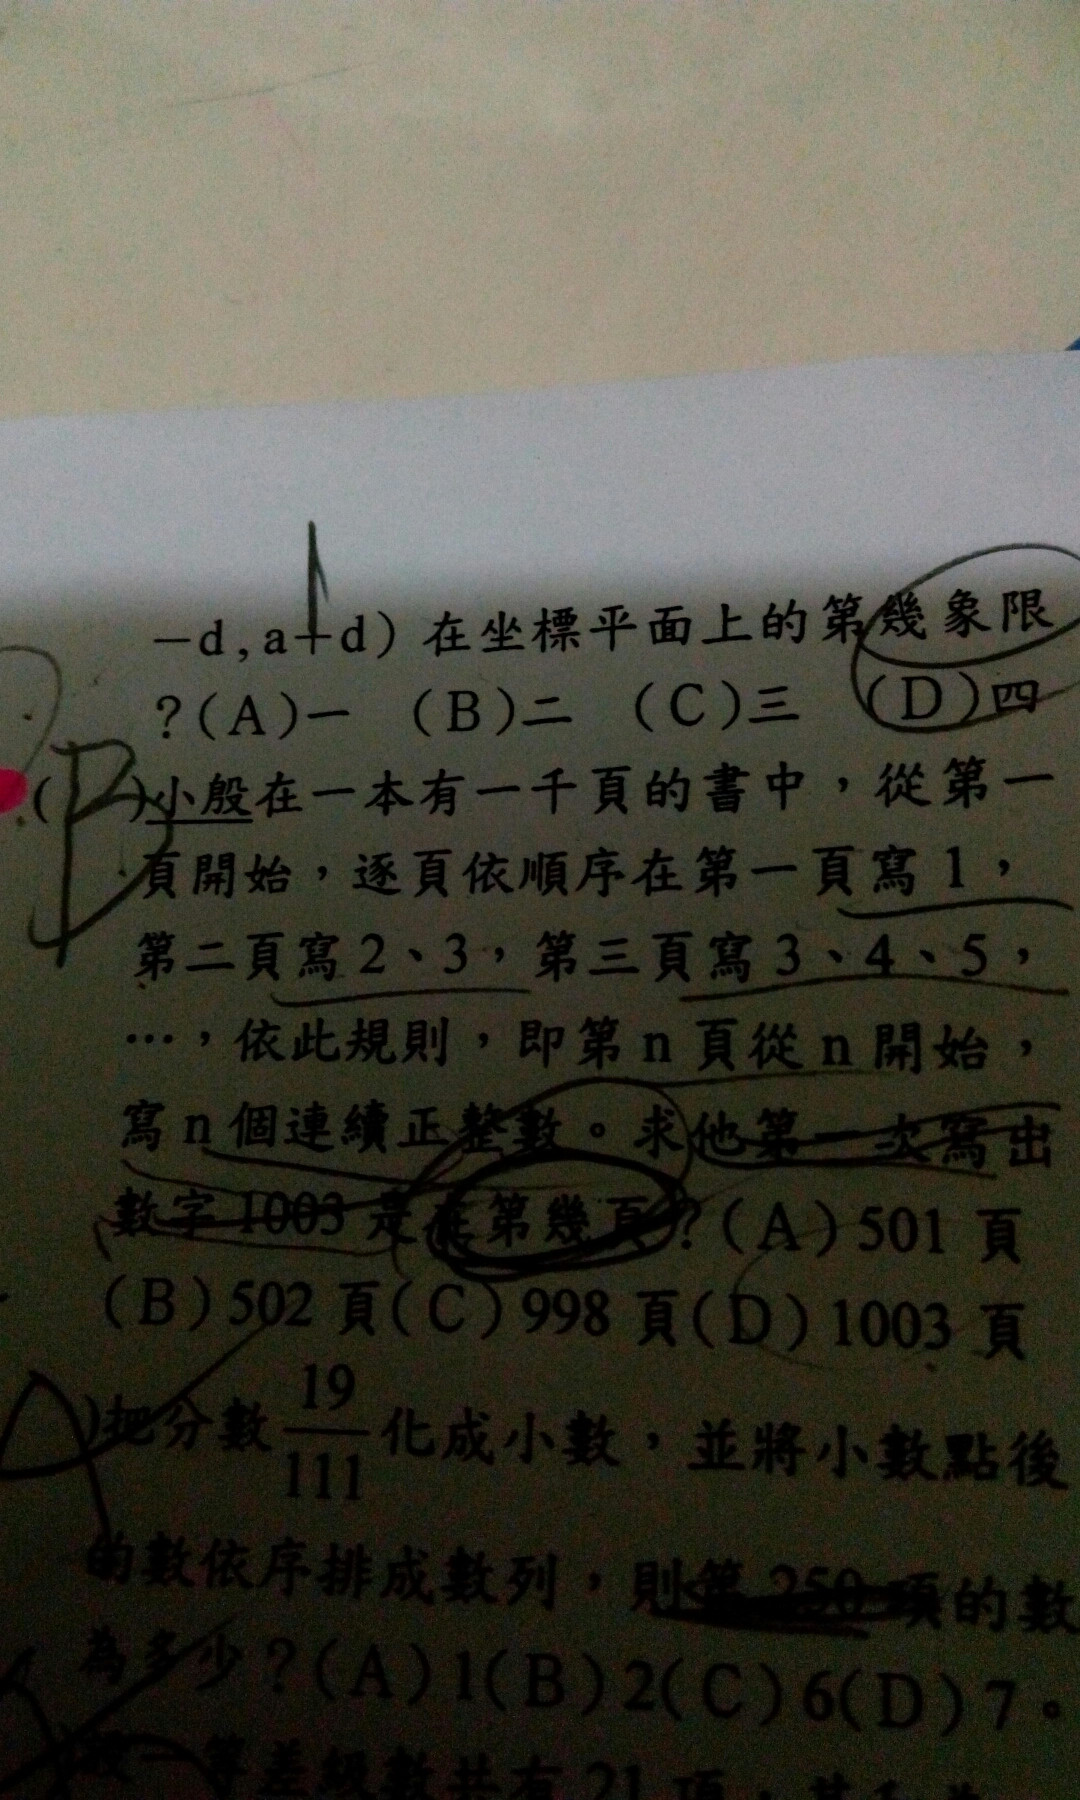 －d,a＋d）在坐標平面上的第幾象限
？(A)一　(B)二　(C)三　(D)四
(B)小殷在一本有一千頁的書中，從第一
頁開始，逐頁依順序在第一頁寫1，
第二頁寫2、3，第三頁寫3、4、5，
…，依此規則，即第n頁從n開始，
寫n個連續正整數。求他第一次寫出
數字1003是在第幾頁？(A)501頁
(B)502頁(C)998頁(D)1003頁
)把分數19/111化成小數，並將小數點後
的數依序排成數列，則第250項的數
為多少？(A)1(B)2(C)6(D)7。
一等差級數共有21項，其